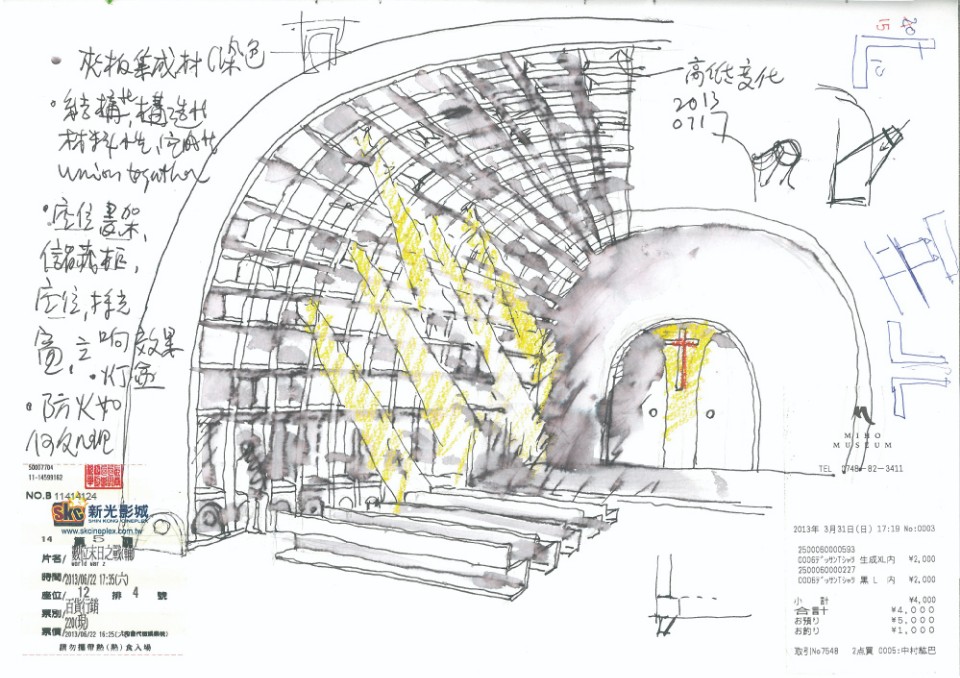 • 夾板集成材(染色
• 結構, 構造
材料
union together
• 座位, 書架,
儲藏柜,
座位,
窗, 音响效果
• 灯
• 防火如
何处理
高低变化
2013
0717
24
15
MIHO
MUSEUM
TEL 0748-82-3411
50007704
11-14599162
NO.B 11414124
skc 新光影城
SHIN KONG CINEPLEX
www.skcineplex.com.tw
14 第 5 號
片名/
world war z
時間/2013/06/22 17:35(六)
座位/ 12 排 4 號
票別/百貨行銷
220(現)
票價/2013/06/22 16:25
請勿攜帶熱(熱)食入場
2013年 3月31日(日) 17:19 No:0003
2500060000593
0006デッサンTシャツ 生成XL内 ¥2,000
2500060000227
0006デッサンTシャツ 黒 L 内 ¥2,000
小 計 ¥4,000
合計 ¥4,000
お預り ¥5,000
お釣り ¥1,000
取引No7548 2点買 0005:中村